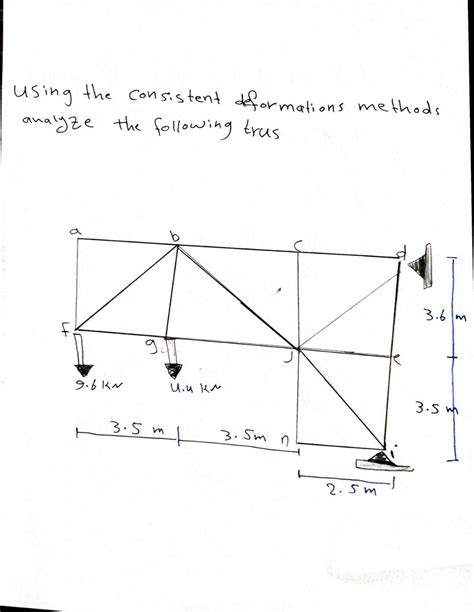 using the consistent deformations methods
analyze the following trus
a b c d
3.6 m
f g J e
9.6 KN 4.4 KN
3.5 m
3.5 m 3.5m n i
2.5 m